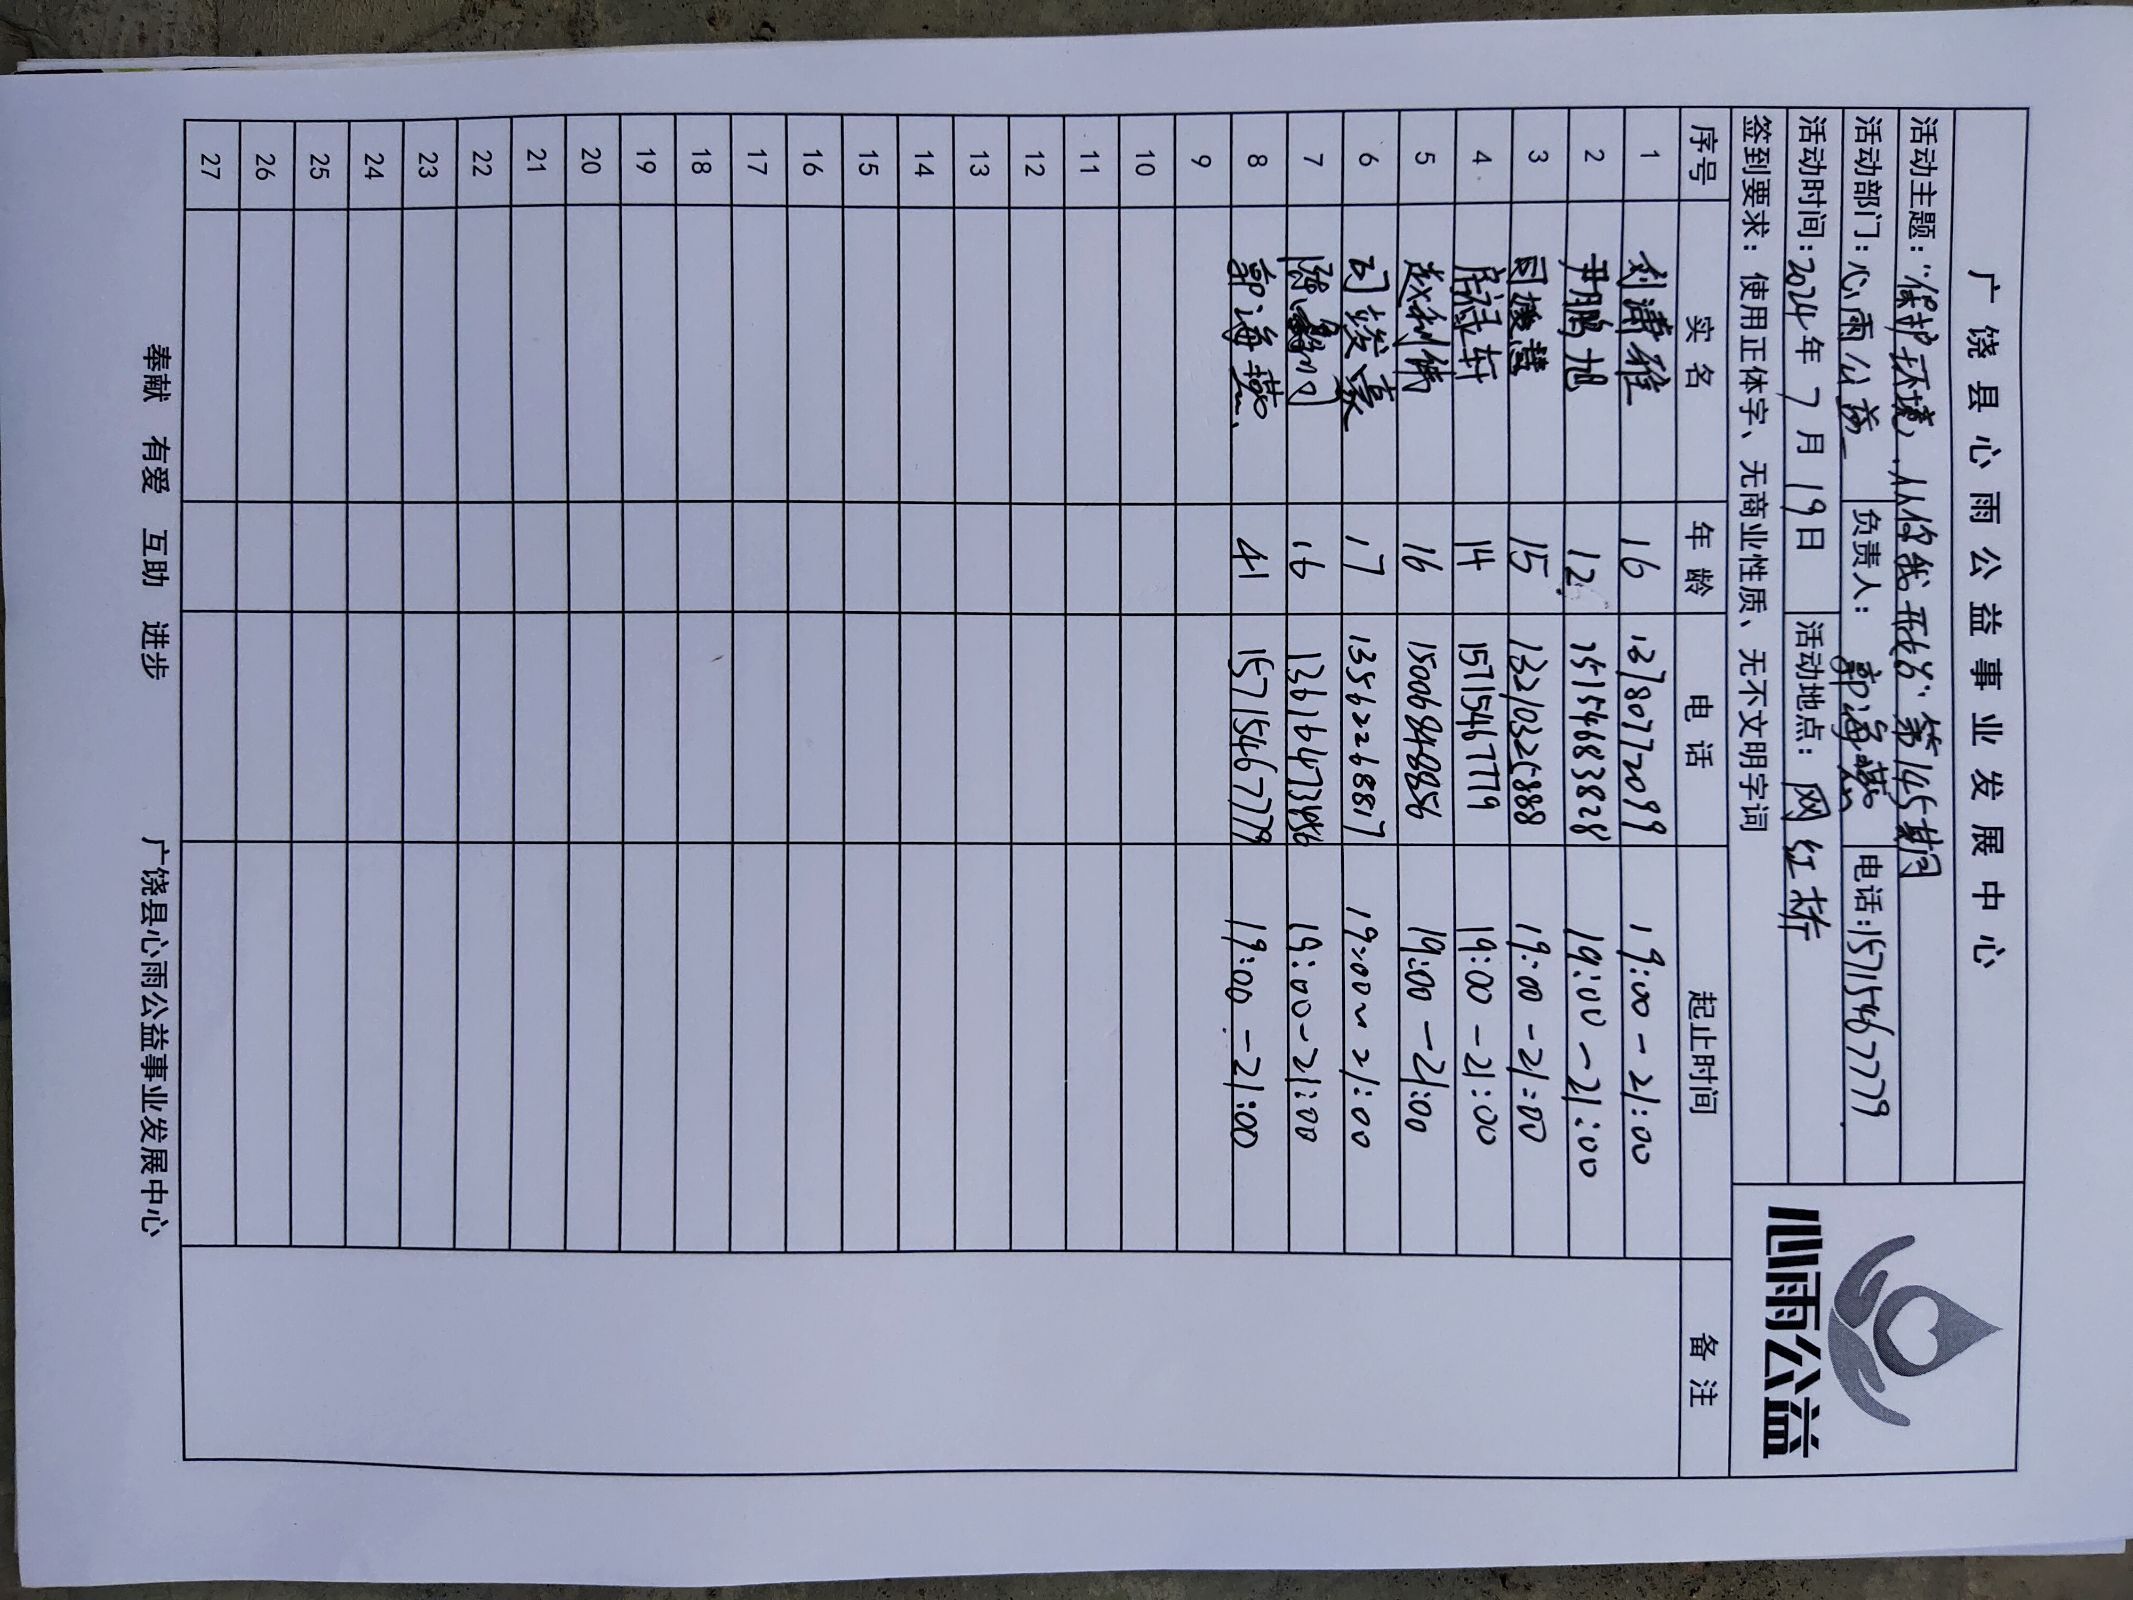 广饶县心雨公益事业发展中心
心雨公益
活动主题:“保护环境,从你我开始”第145期
活动部门:心雨公益 负责人:郭海燕 电话:15715467779
活动时间:2024年7月19日 活动地点:网红桥
签到要求:使用正体字、无商业性质、无不文明字词
序号 实名 年龄 电话 起止时间 备注
1 刘潇雅 16 13780772099 19:00-21:00
2 尹鹏旭 12 15154683828 19:00-21:00
3 15 13210325888 19:00-21:00
4 14 15715467779 19:00-21:00
5 16 15006848856 19:00-21:00
6 司竣豪 17 13562268817 19:00~21:00
7 16 19:00-21:00
8 郭海燕 41 15715467779 19:00-21:00
9
10
11
12
13
14
15
16
17
18
19
20
21
22
23
24
25
26
27
奉献 有爱 互助 进步 广饶县心雨公益事业发展中心